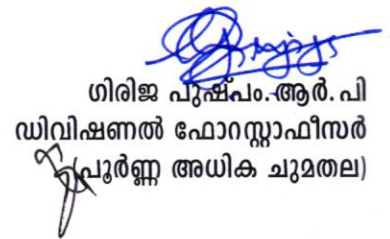 ഗിരിജ പുഷ്പം.ആർ.പി
ഡിവിഷണൽ ഫോറസ്റ്റാഫീസർ
(പൂർണ്ണ അധിക ചുമതല)